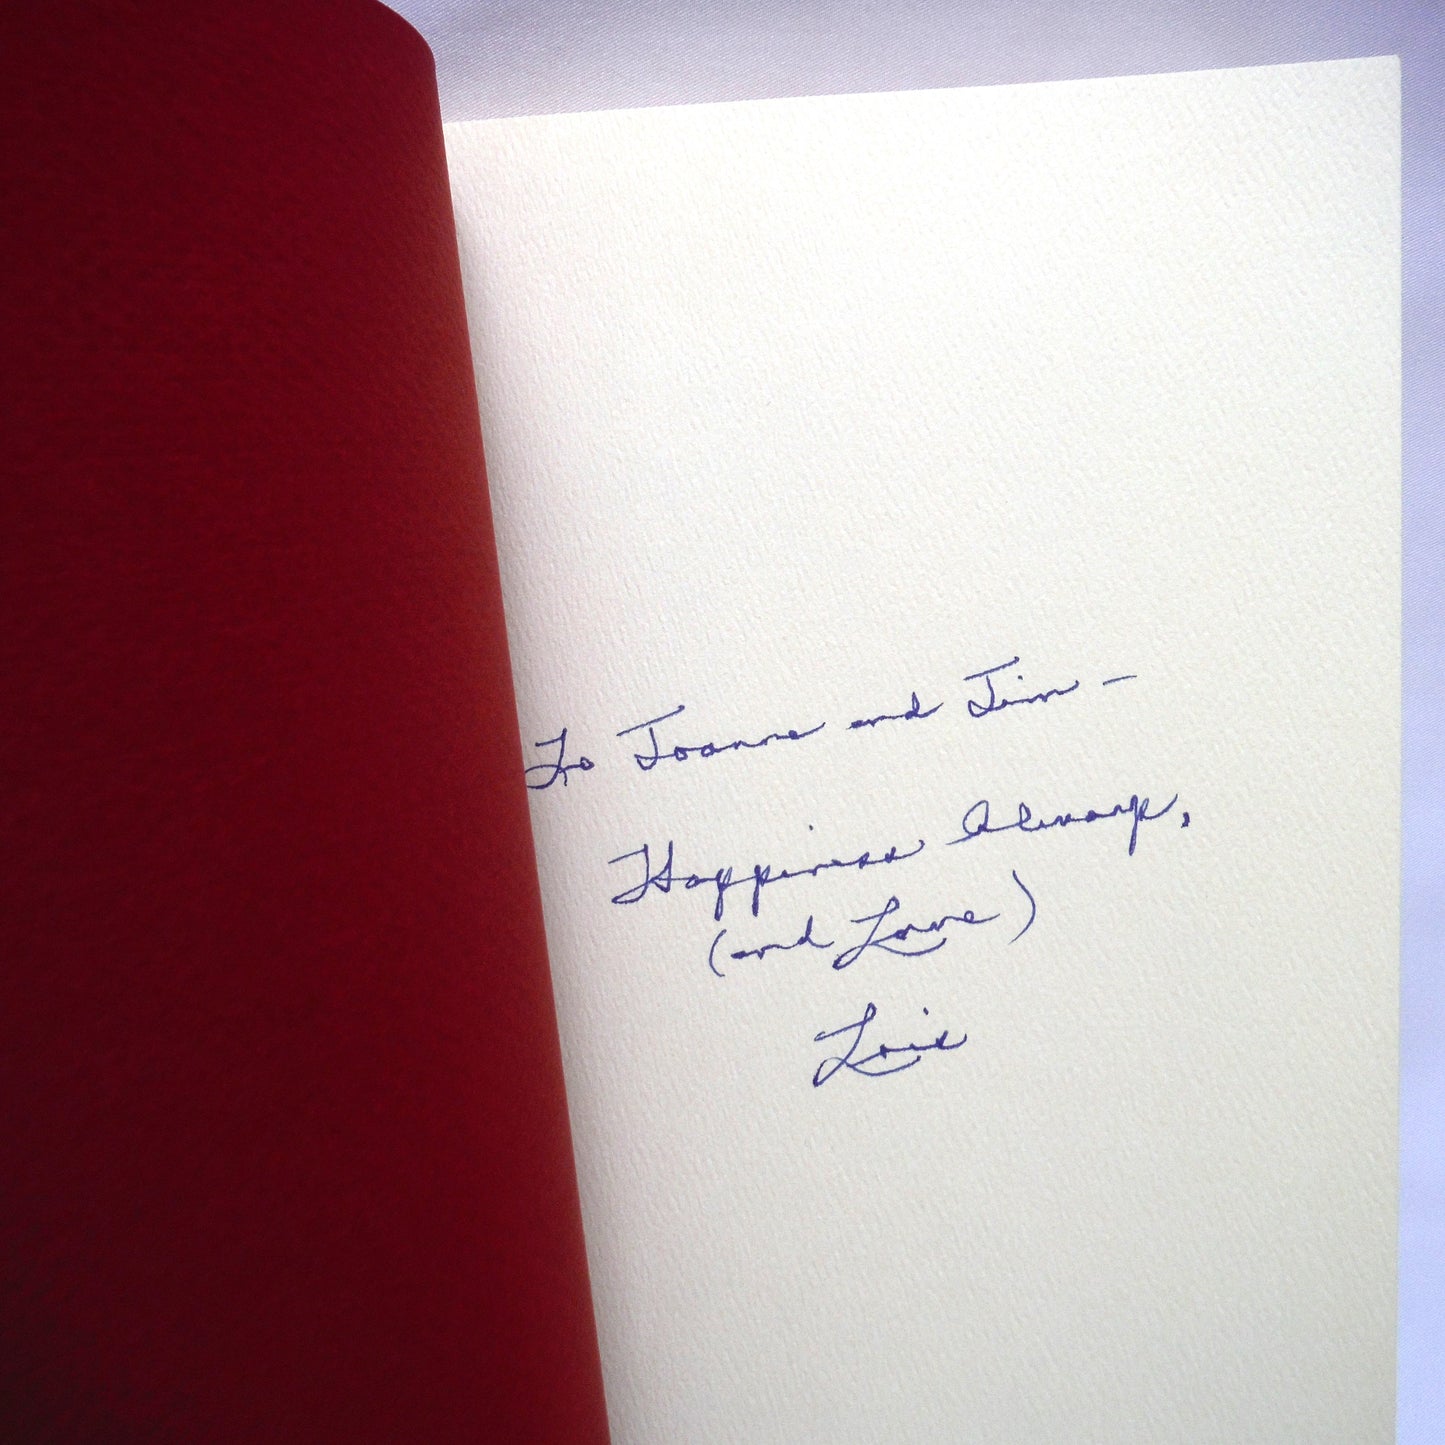 To Joanne and Jim —
Happiness Always,
(and Love)
Lois